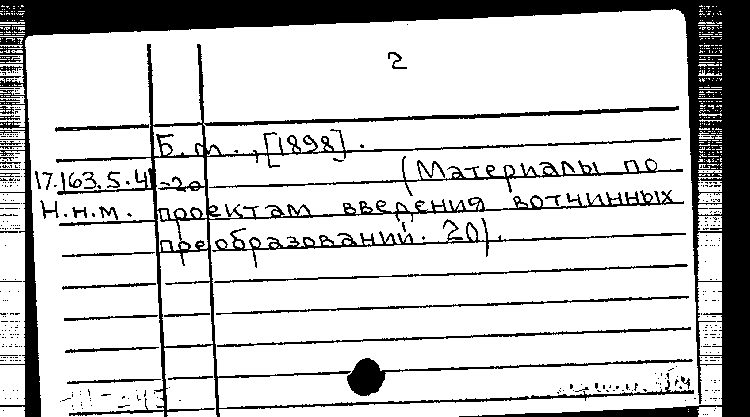 2
Б. м., [1898].
17.163.5.4 =20 (Материалы по
Н.н.м. проектам введения вотчинных
преобразований. 20).